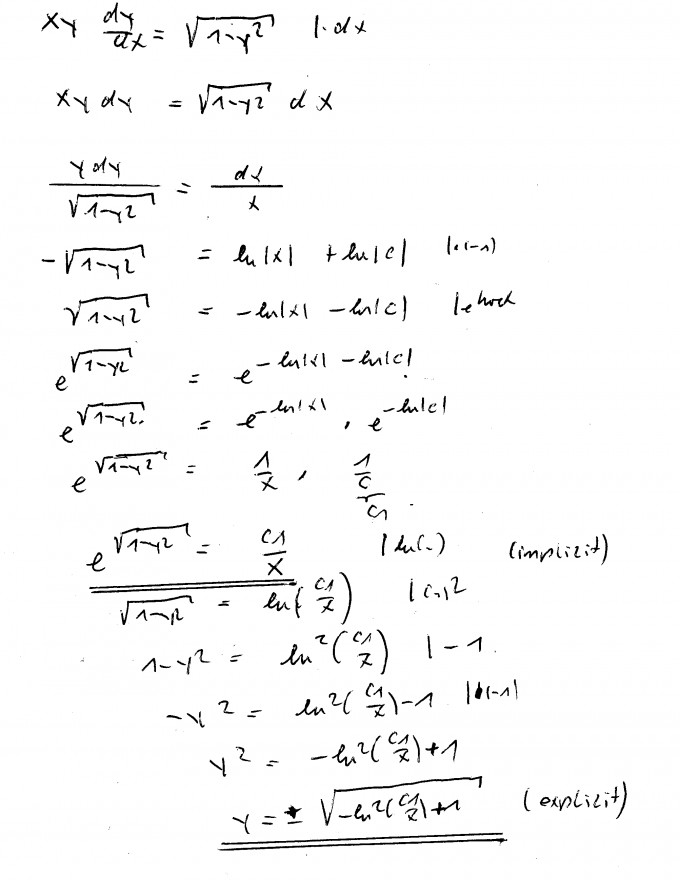 xy dy/dx = √(1-y²) |·dx
xy dy = √(1-y²) dx
y dy/√(1-y²) = dx/x
-√(1-y²) = ln|x| + ln|c| |·(-1)
√(1-y²) = -ln|x| - ln|c| |e hoch
e^√(1-y²) = e^(-ln|x| - ln|c|)
e^√(1-y²) = e^(-ln|x|) · e^(-ln|c|)
e^√(1-y²) = 1/x · 1/c
c1
e^√(1-y²) = c1/x |ln(..) (implizit)
√(1-y²) = ln(c1/x) |(..)²
1-y² = ln²(c1/x) |-1
-y² = ln²(c1/x)-1 |·(-1)
y² = -ln²(c1/x)+1
y = ± √(-ln²(c1/x)+1) (explizit)